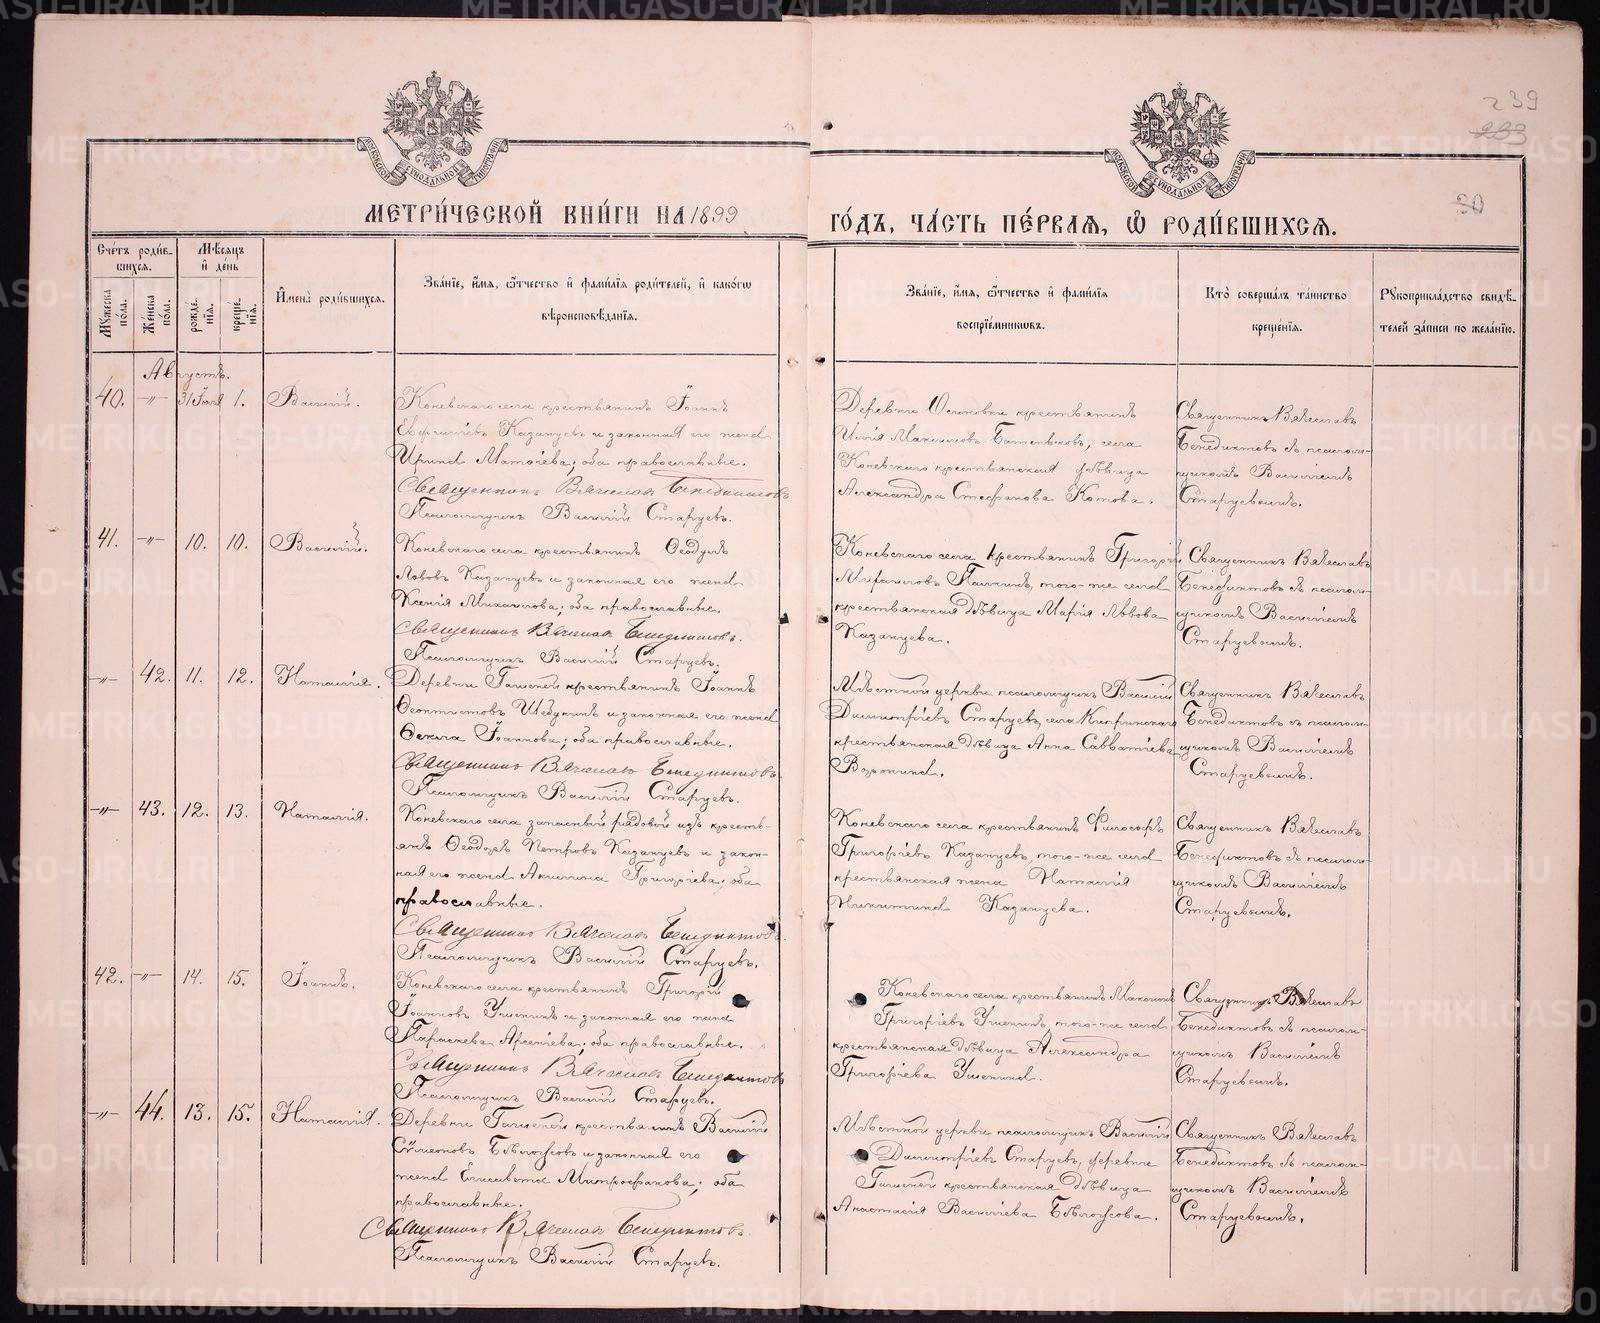 239
293
30
МЕТРИЧЕСКОЙ КНИГИ НА 1899 ГОДЪ, ЧАСТЬ ПЕРВАЯ, Ѡ РОДИВШИХСЯ.
МОСКОВСКОЙ СУНОДАЛЬНОЙ ТИПОГРАФИИ
МОСКОВСКОЙ СУНОДАЛЬНОЙ ТИПОГРАФИИ
Счетъ родив-
шихся.
Мужеска пола.
Женска пола.
Мѣсяцъ
и день
рожде-
нія.
креще-
нія.
Имена родившихся.
Званіе, имя, ѿчество и фамилія родителей, и какогѡ
вѣроисповѣданія.
Званіе, имя, ѿчество и фамилія
воспріемникѡвъ.
Кто совершалъ таинство
крещенія.
Рукоприкладство свидѣ-
телей записи по желанію.
Августъ.
40. -"- 31 Іюля 1. Василій.
Коневскаго села крестьянинъ Іоаннъ
Евфиміевъ Казанцевъ и законная его жена
Ирина Матѳіева; оба православные.
Священникъ Вячеславъ Бенедиктовъ
Псаломщикъ Василій Старцевъ.
Деревни Осиновки крестьянинъ
Илія Максимовъ Батеньковъ, села
Коневскаго крестьянская дѣвица
Александра Стефанова Котова.
Священникъ Вячеславъ
Бенедиктовъ съ псалом-
щикомъ Василіемъ
Старцевымъ.
41. -"- 10. 10. Василій.
Коневскаго села крестьянинъ Ѳеодулъ
Львовъ Казанцевъ и законная его жена
Ксенія Михаилова; оба православные.
Священникъ Вячеславъ Бенедиктовъ.
Псаломщикъ Василій Старцевъ.
Коневскаго села крестьянинъ Григорій
Михаиловъ Палкинъ, того-же села
крестьянская дѣвица Марія Львова
Казанцева.
Священникъ Вячеславъ
Бенедиктовъ съ псалом-
щикомъ Василіемъ
Старцевымъ.
-"- 42. 11. 12. Наталія.
Деревни Гашеней крестьянинъ Іоаннъ
Ѳеоктистовъ Шабунинъ и законная его жена
Ѳекла Іоаннова; оба православные.
Священникъ Вячеславъ Бенедиктовъ.
Псаломщикъ Василій Старцевъ.
Мѣстной церкви псаломщикъ Василій
Димитріевъ Старцевъ, села Кипринскаго
крестьянская дѣвица Анна Савватіева
Воронина.
Священникъ Вячеславъ
Бенедиктовъ съ псалом-
щикомъ Василіемъ
Старцевымъ.
-"- 43. 12. 13. Наталія.
Коневскаго села запасный рядовой изъ кресть-
янъ Ѳеодоръ Петровъ Казанцевъ и закон-
ная его жена Акилина Григоріева; оба
православные.
Священникъ Вячеславъ Бенедиктовъ.
Псаломщикъ Василій Старцевъ.
Коневскаго села крестьянинъ Философъ
Григоріевъ Казанцевъ, того-же села
крестьянская жена Наталія
Никитина Казанцева.
Священникъ Вячеславъ
Бенедиктовъ съ псалом-
щикомъ Василіемъ
Старцевымъ.
42. -"- 14. 15. Іоаннъ.
Коневскаго села крестьянинъ Григорій
Іоанновъ Ушенинъ и законная его жена
Параскева Арсеніева; оба православные.
Священникъ Вячеславъ Бенедиктовъ
Псаломщикъ Василій Старцевъ.
Коневскаго села крестьянинъ Максимъ
Григоріевъ Ушенинъ, того-же села
крестьянская дѣвица Александра
Григоріева Ушенина.
Священникъ Вячеславъ
Бенедиктовъ съ псалом-
щикомъ Василіемъ
Старцевымъ.
-"- 44. 13. 15. Наталія.
Деревни Гашеней крестьянинъ Василій
Симеоновъ Бѣлоусовъ и законная его
жена Елисавета Митрофанова; оба
православные.
Священникъ Вячеславъ Бенедиктовъ
Псаломщикъ Василій Старцевъ.
Мѣстной церкви псаломщикъ Василій
Димитріевъ Старцевъ, деревни
Гашеней крестьянская дѣвица
Анастасія Василіева Бѣлоусова.
Священникъ Вячеславъ
Бенедиктовъ съ псалом-
щикомъ Василіемъ
Старцевымъ.
METRIKI.GASO-URAL.RU